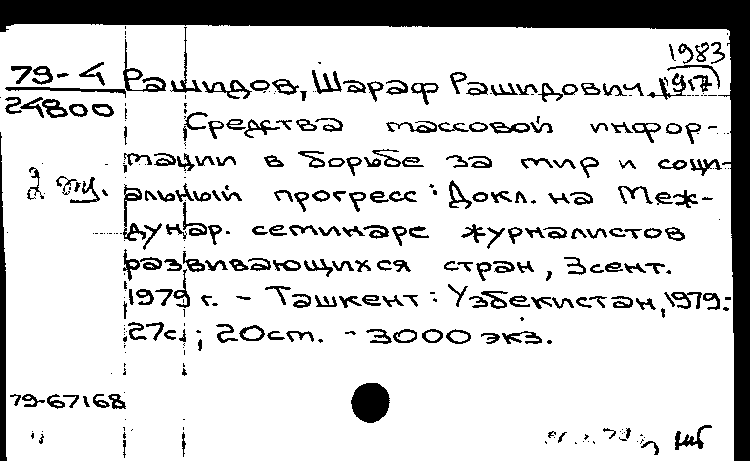 1983
79-4 Рашидов, Шараф Рашидович. (1917)
24800
Средства массовой инфор-
мации в борьбе за мир и соци-
2 экз. альный прогресс : Докл. на Меж-
дунар. семинаре журналистов
развивающихся стран, 3 сент.
1979 г. - Ташкент : Узбекистан, 1979.-
27с. ; 20см. - 3000 экз.
79-67168